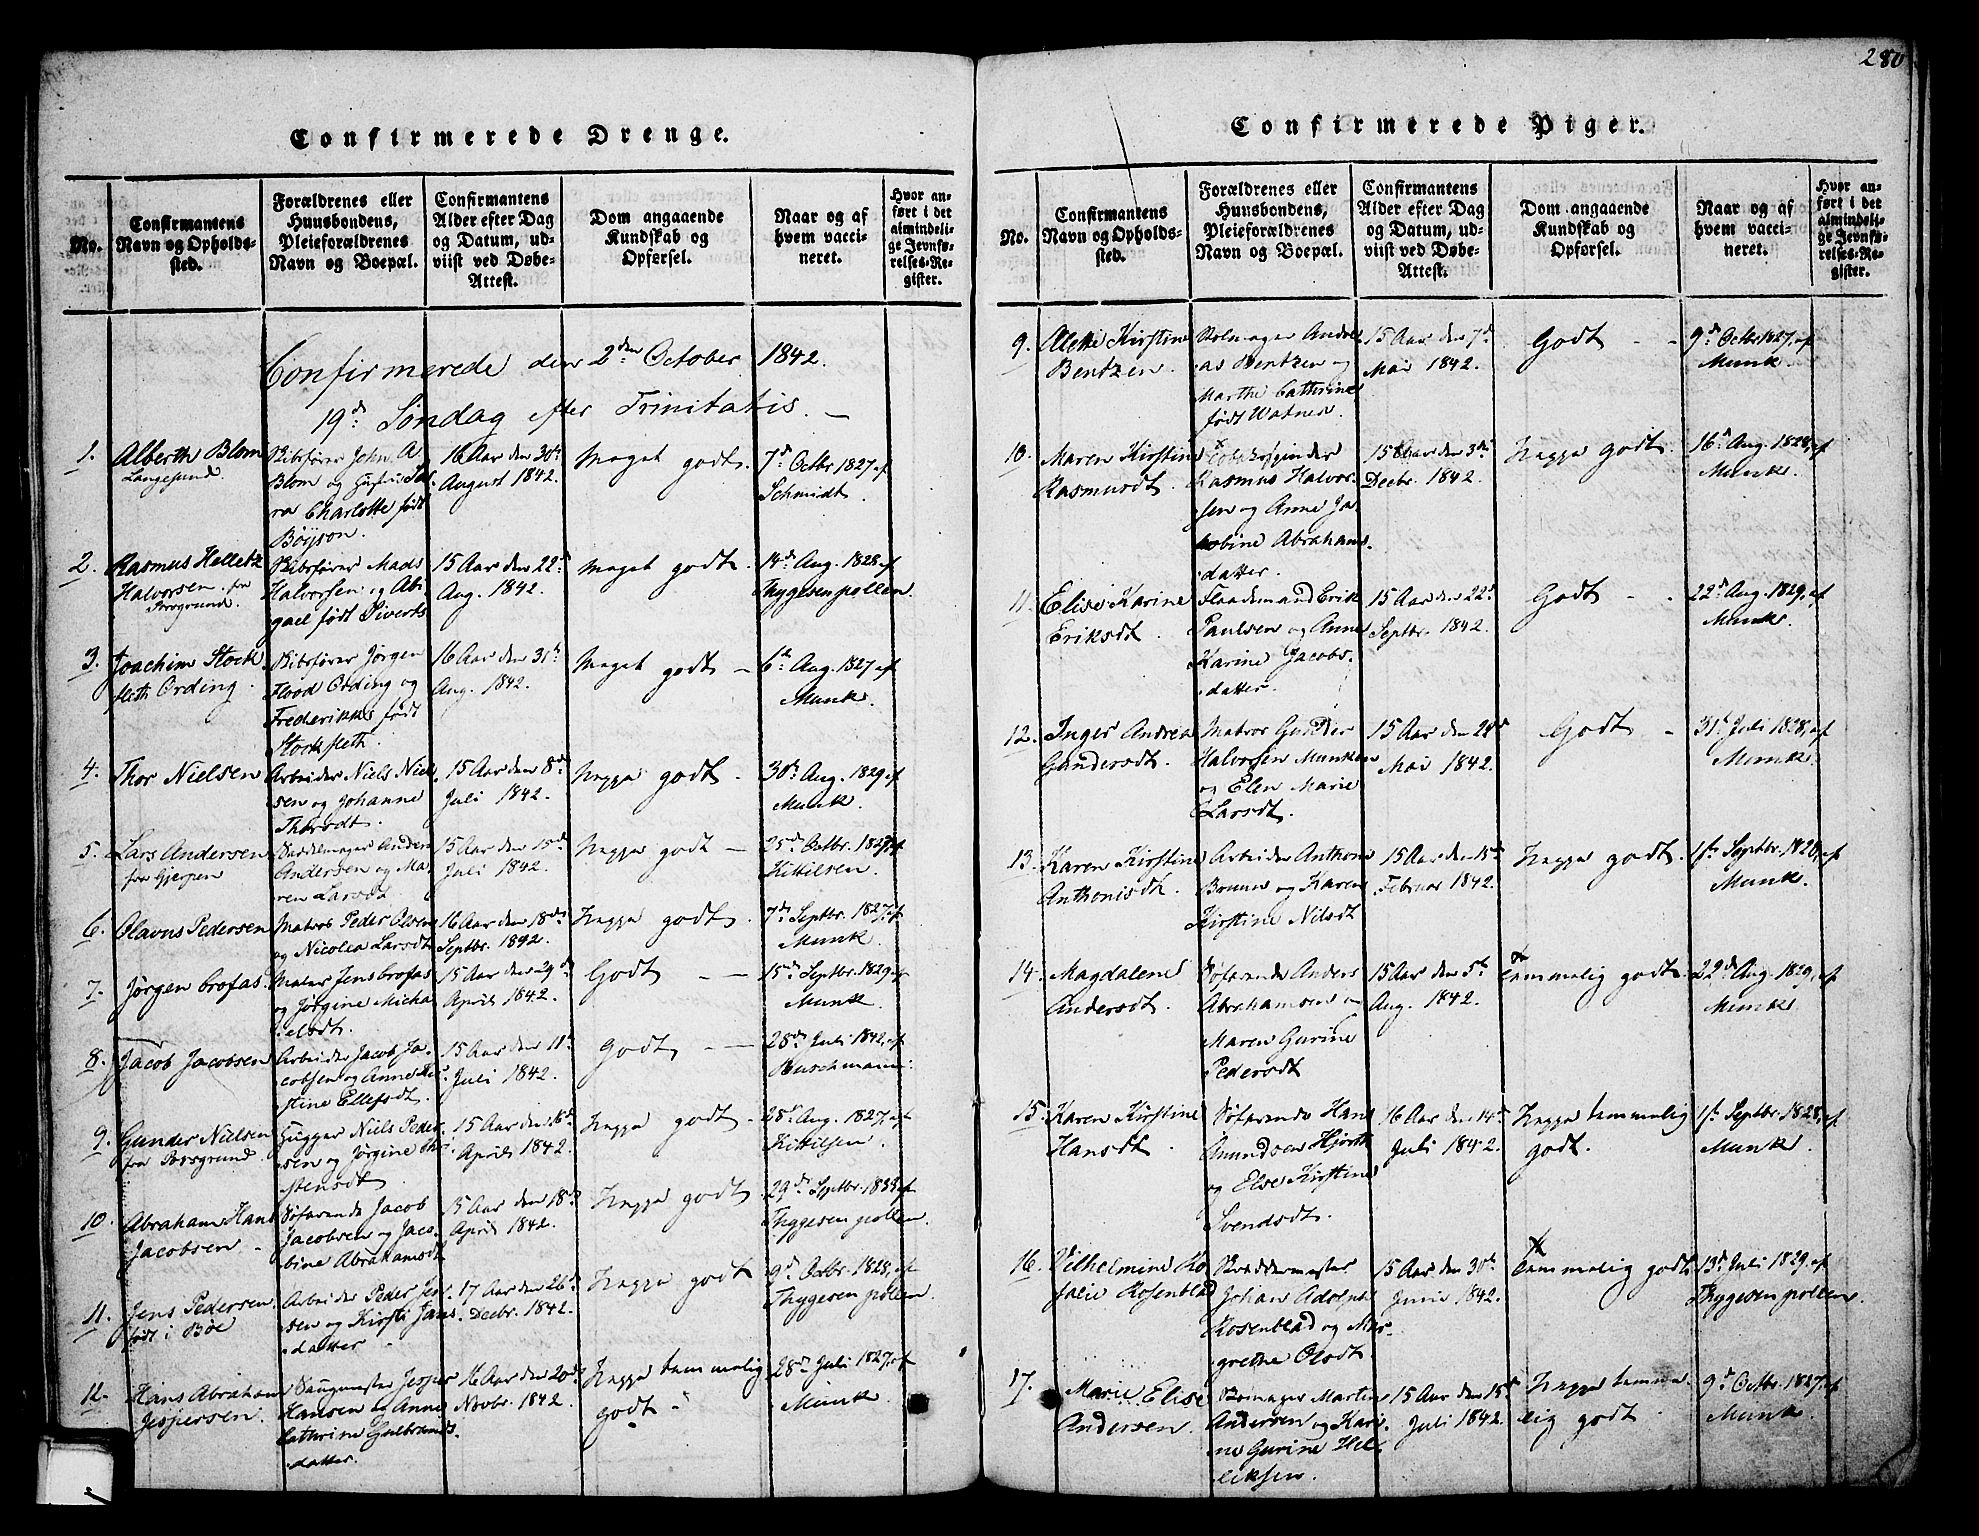 280
Confirmerede Drenge.
No.
Confirmantens
Navn og Opholds-
sted.
Forældrenes eller
Huusbondens,
Pleieforældrenes
Navn og Boepæl.
Confirmantens
Alder efter Dag
og Datum, ud-
viist ved Døbe-
Attest.
Dom angaaende
Kundskab og
Opførsel.
Naar og af
hvem vacci-
neret.
Hvor an-
ført i det
almindeli-
ge Jevnfø-
relses-Re-
gister.
Confirmerede den 2den October 1842.
19de Søndag efter Trinitatis. —
1.
Alberth Blom
Langesund.
Skibsfører John A.
Blom og Hustru Sa
ra Charlotte født
Böyson.
16 Aar den 30te
August 1842.
Meget godt.
7de Octbr 1827 af
Schmidt.
2.
Rasmus
Halvorsen. fra
Porsgrund.
Skibsfører Mads
Halvorsen og Abi
gael født Siverts
15 Aar den 22de
Aug. 1842.
Meget godt.
14de Aug. 1828 af
Thygesen pollen.
3.
Joachim Stock
fleth Ording.
Skibsfører Jørgen
Flood Ording og
Frederikke født
Stockfleth.
16 Aar den 31te
Aug. 1842.
Meget godt —
6te Aug. 1827 af
Munk.
4.
Thor Nielsen
Arbeider Niels Niel
sen og Johanne
Thorsdt.
15 Aar den 8de
Juli 1842.
Megga godt -
30te Aug. 1829 af
Munk.
5.
Lars Andersen
fra Gjerpen
Anders
Andersen og Ma
ren Larsdt
15 Aar den 15de
Juli 1842.
godt —
25de Octbr. 1827 af
Kittilsen.
6.
Olavus Pedersen
Matros Peder Olsen
og Nicolea Larsdt
16 Aar den 18de
Septbr. 1842.
godt.
7de Septbr. 1827 af
Munk.
7.
Jørgen Crofas.
Jens Crofas
og Jørgine Micha
elsdt.
15 Aar den 29de
April 1842.
Godt — —
15de Septbr. 1829 af
Munk.
8.
Jacob Jacobsen
Arbeider Jacob Ja-
cobsen og Anne Kir
stine Ellefsdt.
15 Aar den 11te
Juli 1842.
Godt — —
28de Juli 1842, af
Buschmann.
9.
Gunder Nielsen
fra Porsgrund.
Hugger Niels Peder
sen og Jørgine Thor
stensdt
15 Aar den 16de
April 1842.
godt -
28de Aug. 1827, af
Kittilsen.
10.
Abraham Hans
Jacobsen -
Søfarende Jacob
Jacobsen og Jaco-
bine Abrahamsdt
15 Aar den 18de
April 1842.
godt
29de Septbr. 1833 af
Thygesen pollen.
11.
Jens Pedersen
født i Böe
Arbeider Peder Jen
sen og Kirsti Jans
datter
17 Aar den 26de
Decbr. 1842.
godt
9de Octbr. 1828, af
Thygesen pollen.
12.
Hans Abraham
Jespersen.
Jesper
Hansen og Anne
Cathrine Gulbrands
datter.
16 Aar den 20de
Novbr. 1842.
temmelig
godt -
28de Juli 1827, af
Munk
Confirmerede Piger.
No.
Confirmantens
Navn og Opholds-
sted.
Forældrenes eller
Huusbondens,
Pleieforældrenes
Navn og Boepæl.
Confirmantens
Alder efter Dag
og Datum, ud-
viist ved Døbe-
Attest.
Dom angaaende
Kundskab og
Opførsel.
Naar og af
hvem vacci-
neret.
Hvor an-
ført i det
almindeli-
ge Jevnfø-
relses-Re-
gister.
9.
Aleth Kirstine
Bentzen.
Andre
as Bentzen og
Marthe Cathrine
født Watner.
15 Aar den 7de
Mai 1842.
Godt - -
9de Octbr 1827, af
Munk.
10.
Maren Kirstine
Rasmusdt.
Rasmus Halvor
sen og Anne Ja
cobine Abrahams
datter.
15 Aar den 3die
Decbr. 1842.
godt.
16de Aug. 1828, af
Munk.
11.
Elise Karine
Eriksdt.
Flaademand Erik
Paulsen og Anne
Karine Jacobs.
datter.
15 Aar den 22de
Septbr. 1842.
Godt - -
22de Aug. 1829, af
Munk.
12.
Inger Andrea
Gundersdt.
Matros Gunder
Halvorsen Munken
og Elen Marie
Larsdt.
15 Aar den 28de
Mai 1842.
Godt -
31te Juli 1828, af
Munk
13.
Karen Kirstine
Anthonisdt.
Arbeider Anthon
Bruun og Karen
Kirstine Nilsdt
15 Aar den 15de
Februar 1842.
godt.
1ste Septbr. 1828, af
Munk.
14.
Magdalene
Andersdt.
Søfarende Anders
Abrahamsen og
Maren Gurine
Pedersdt
15 Aar den 5te
Aug. 1842.
Temmelig godt.
22de Aug. 1829, af
Munk
15.
Karen Kirstine
Hansdt.
Søfarende Hans
Amundsen Hjorth
og Else Kirstine
Svendsdt.
16 Aar den 14de
Juli 1842.
temmelig
godt.
1ste Septbr. 1828, af
Munk.
16.
Vilhelmine Ro
salie Rosenblad
Skreddermester
Johan Adolph
Rosenblad og Mar-
grethe Olsdt
15 Aar den 30te
Junii 1842.
Temmelig godt
13de Juli 1829, af
Thygesen pollen.
17.
Marie Elise
Andersen
Martin
Andersen og Kari
ne Gurine Hel
leksen.
15 Aar den 15de
Juli 1842.
temme
lig godt
9de Octbr. 1827, af
Munk.